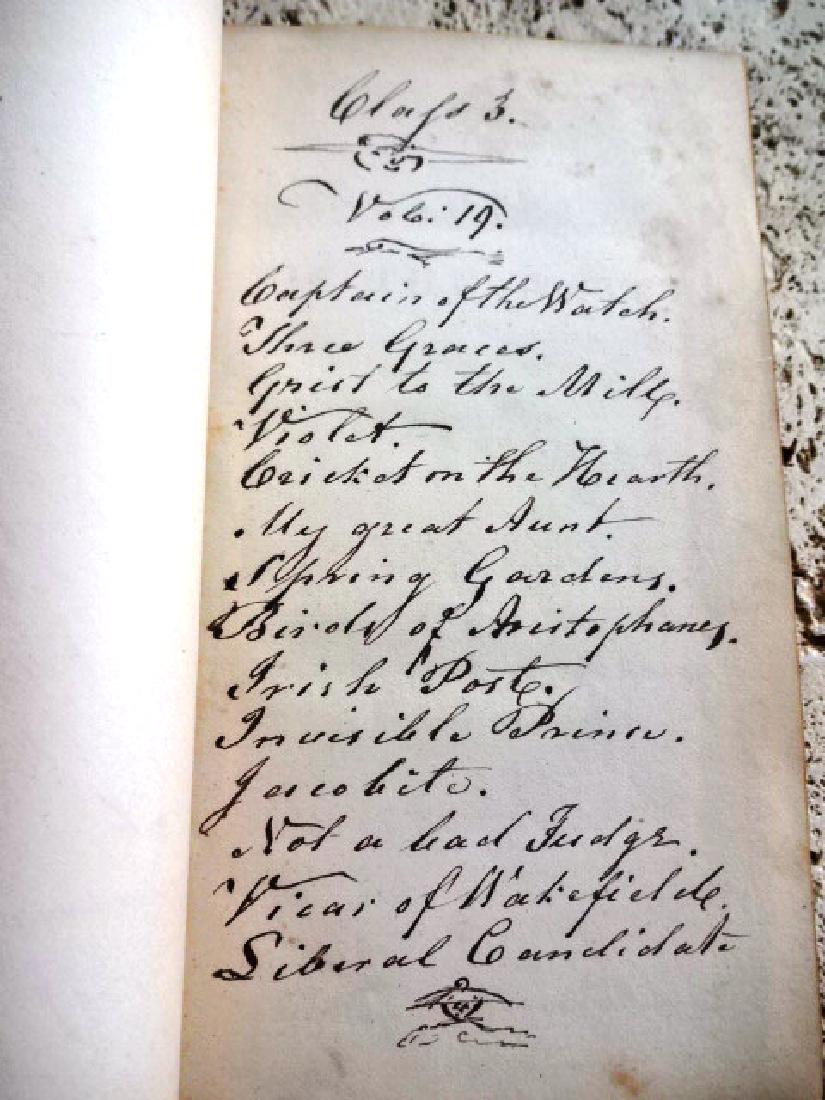 Class 3.
Vol: 19.
Captain of the Watch.
Three Graces.
Grist to the Mill.
Violet.
Cricket on the Hearth.
My great Aunt.
Spring Gardens.
Birds of Aristophanes.
Irish Post.
Invisible Prince.
Jacobite.
Not a bad Judge.
Vicar of Wakefield.
Liberal Candidate